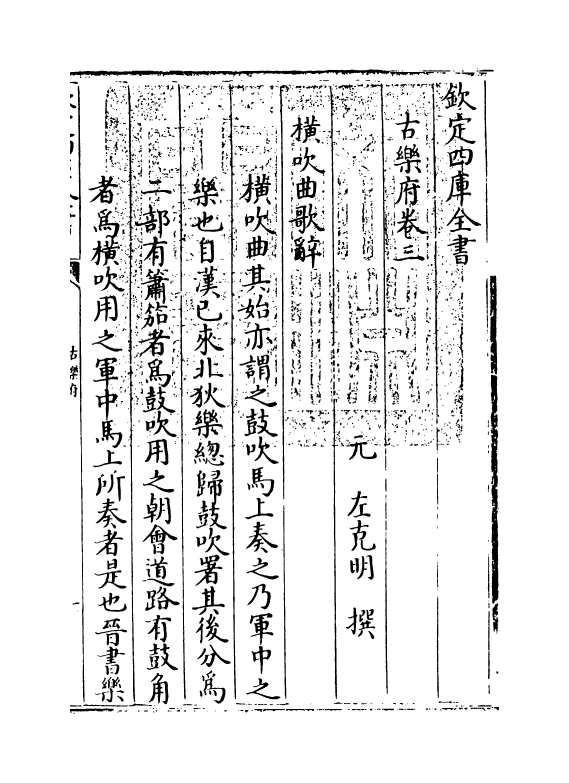 欽定四庫全書
古樂府卷三
元　左克明　撰
橫吹曲歌辭
橫吹曲其始亦謂之鼓吹馬上奏之乃軍中之
樂也自漢已來北狄樂總歸鼓吹署其後分為
二部有簫笳者為鼓吹用之朝會道路有鼓角
者為橫吹用之軍中馬上所奏者是也晉書樂
古樂府
一